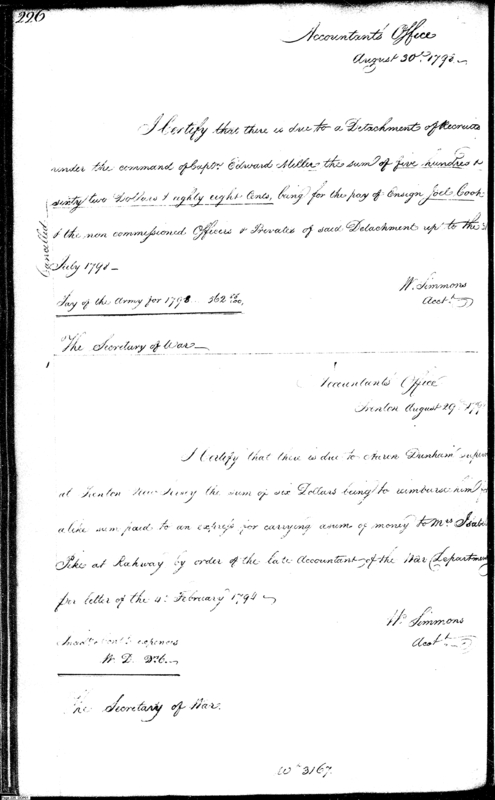 226
Accountant's Office
August 30th 1798
I Certify that there is due to a Detachment of Recruits
under the command of Captn. Edward Miller the sum of five hundred &
sixty two Dollars & eighty eight Cents, being for the pay of Ensign Joel Cook
& the non commissioned Officers & Privates of said Detachment up to the 31
July 1798
Cancelled
Wm. Simmons
Acct.
Pay of the Army for 1798 562
The Secretary of War
Accountant's Office
Trenton August 29th 179
I Certify that there is due to Aaron Dunham
at Trenton New Jersey the sum of six Dollars being to reimburse him for
a like sum paid to an express for carrying a sum of money to Mrs Isabella
Pike at Rahway by order of the late Accountant of the War Department
per letter of the 4th February 1794
Wm. Simmons
Acct.
expences
W. D. D6.
The Secretary of War.
Wt 3167.